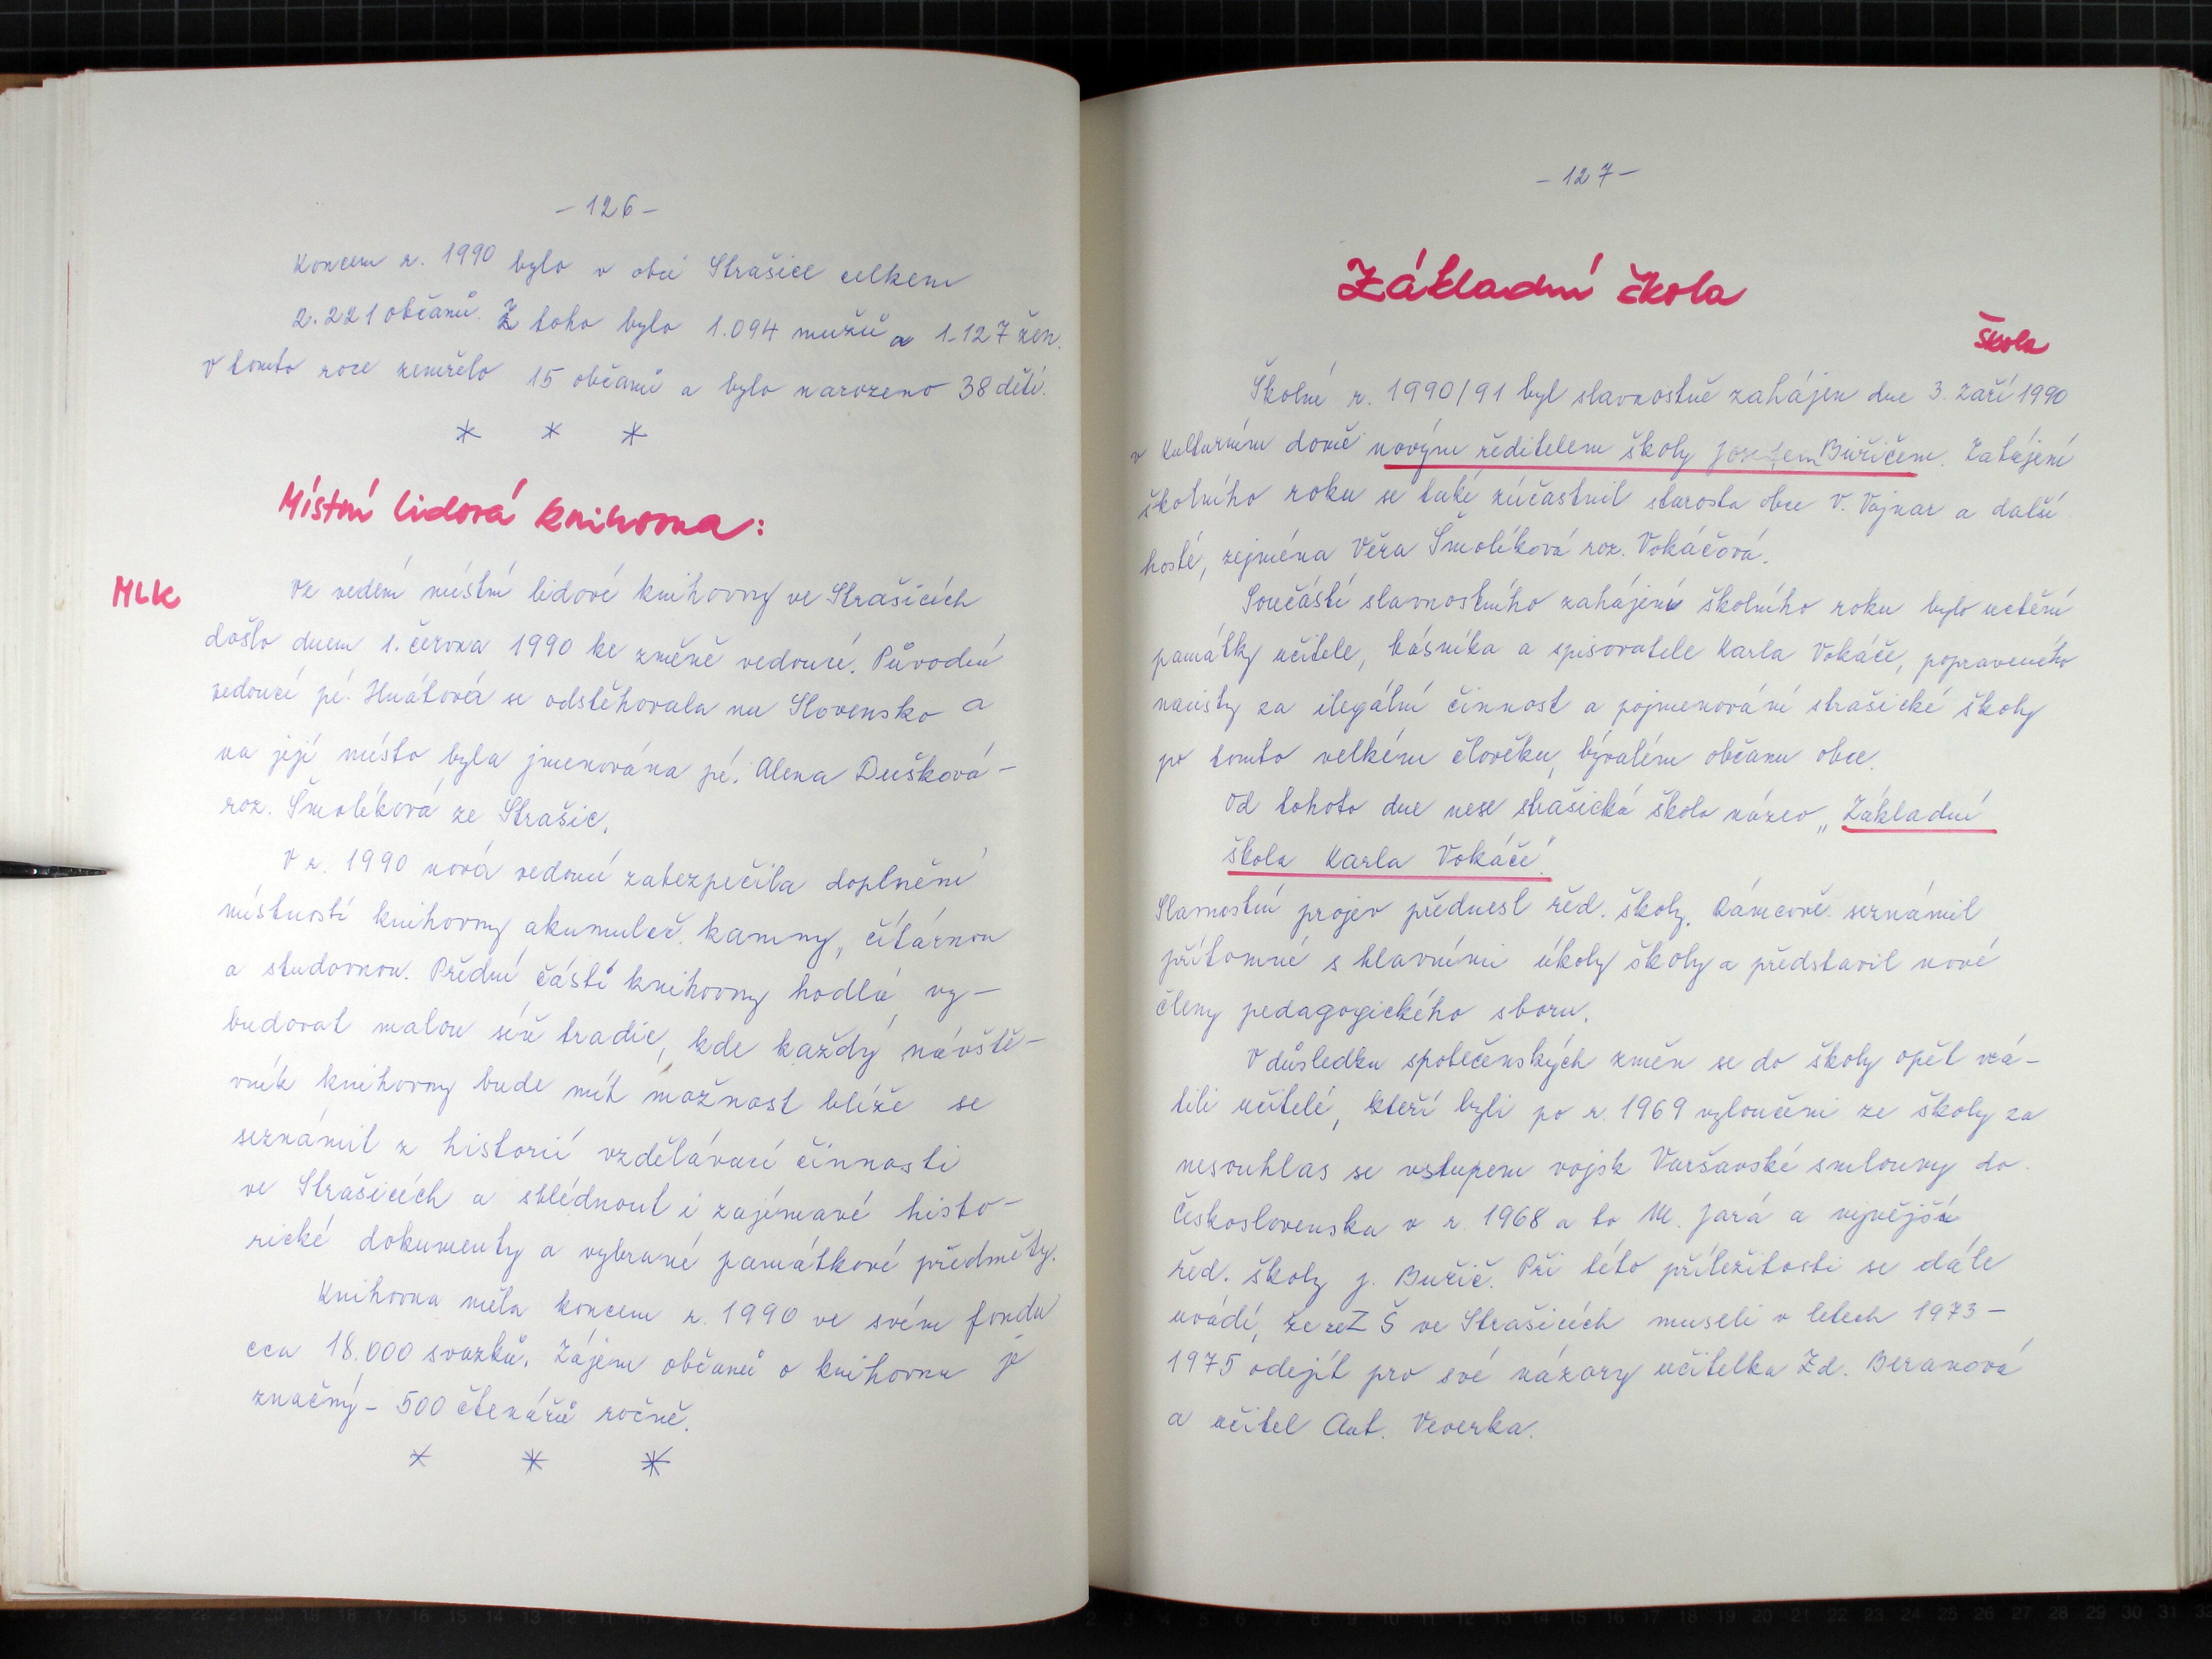 - 126 -
Koncem r. 1990 bylo v obci Strašice celkem
2.221 občanů. Z toho bylo 1.094 mužů a 1.127 žen.
V tomto roce zemřelo 15 občanů a bylo narozeno 38 dětí.
* * *
Místní lidová knihovna:
MLK
Ve vedení místní lidové knihovny ve Strašicích
došlo dnem 1. června 1990 ke změně vedoucí. Původní
vedoucí pí. Hnátová se odstěhovala na Slovensko a
na její místo byla jmenována pí. Alena Dušková -
roz. Šmolíková ze Strašic.
V r. 1990 nová vedoucí zabezpečila doplnění
místností knihovny akumulač. kamny, čítárnou
a studovnou. Přední části knihovny hodlá vy-
budovat malou síň tradic, kde každý návště-
vník knihovny bude mít možnost blíže se
seznámit z historií vzdělávací činnosti
ve Strašicích a shlédnout i zajímavé histo-
rické dokumenty a vybrané památkové předměty.
Knihovna měla koncem r. 1990 ve svém fondu
cca 18.000 svazků. Zájem občanů o knihovnu je
značný - 500 čtenářů ročně.
* * *
- 127 -
Základní škola
Škola
Školní r. 1990/91 byl slavnostně zahájen dne 3. září 1990
v Kulturním domě novým ředitelem školy Josefem Buřičem. Zahájení
školního roku se také zúčastnil starosta obce V. Vajnar a další
hosté, zejména Věra Šmolíková roz. Vokáčová.
Součástí slavnostního zahájení školního roku bylo uctění
památky učitele, básníka a spisovatele Karla Vokáče, popraveného
nacisty za ilegální činnost a pojmenování strašické školy
po tomto velkém člověku, bývalém občanu obce.
Od tohoto dne nese strašická škola název „Základní
škola Karla Vokáče".
Slavnostní projev přednesl řed. školy. Rámcově seznámil
přítomné s hlavními úkoly školy a představil nové
členy pedagogického sboru.
V důsledku společenských změn se do školy opět vrá-
tili učitelé, kteří byli po r. 1969 vyloučeni ze školy za
nesouhlas se vstupem vojsk Varšavské smlouvy do
Československa v r. 1968 a to M. Jará a nynější
řed. školy J. Buřič. Při této příležitosti se dále
uvádí, že ze ZŠ ve Strašicích museli v letech 1973 -
1975 odejít pro své názory učitelka Zd. Beranová
a učitel Ant. Veverka.